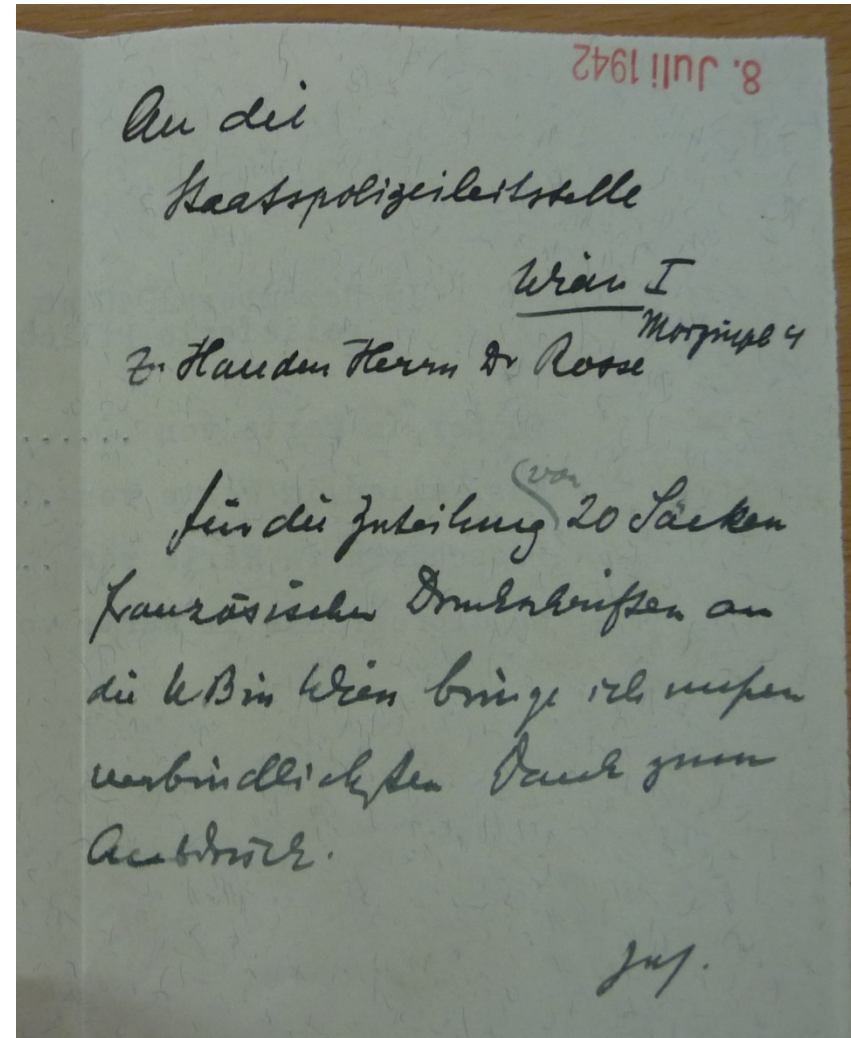 8. Juli 1942
An die
Staatspolizeileitstelle
Wien I
Morzinpl 4
Z. Handen Herrn Dr Rosse
von
für die Zuteilung 20 Säcken
französischer Druckschriften an
die UB in Wien bringe ich
verbindlichsten Dank zum
Ausdruck.